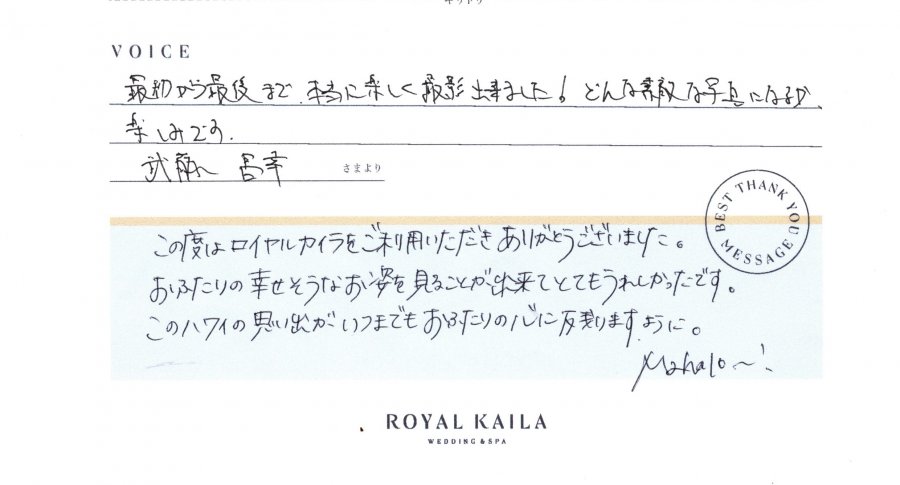 VOICE
最初から最後まで、本当に楽しく撮影出来ました！どんな素敵な写真になるか、
楽しみです。
武藤 昌幸 さまより
BEST THANK YOU MESSAGE
この度はロイヤルカイラをご利用いただきありがとうございました。
おふたりの幸せそうなお姿を見ることが出来てとてもうれしかったです。
このハワイの思い出がいつまでもおふたりの心に残りますように。
Mahalo〜！
ROYAL KAILA
WEDDING & SPA